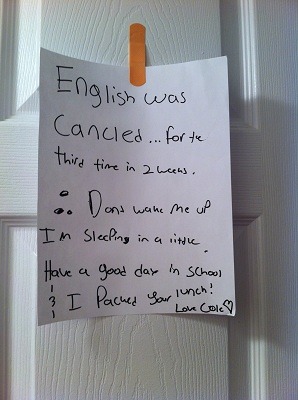 English was
Cancled... for the
third time in 2 weeks.
∴ Dont wake me up
I'm Sleeping in a little.
Have a good day in school
I Packed your lunch!
Love Cole♡